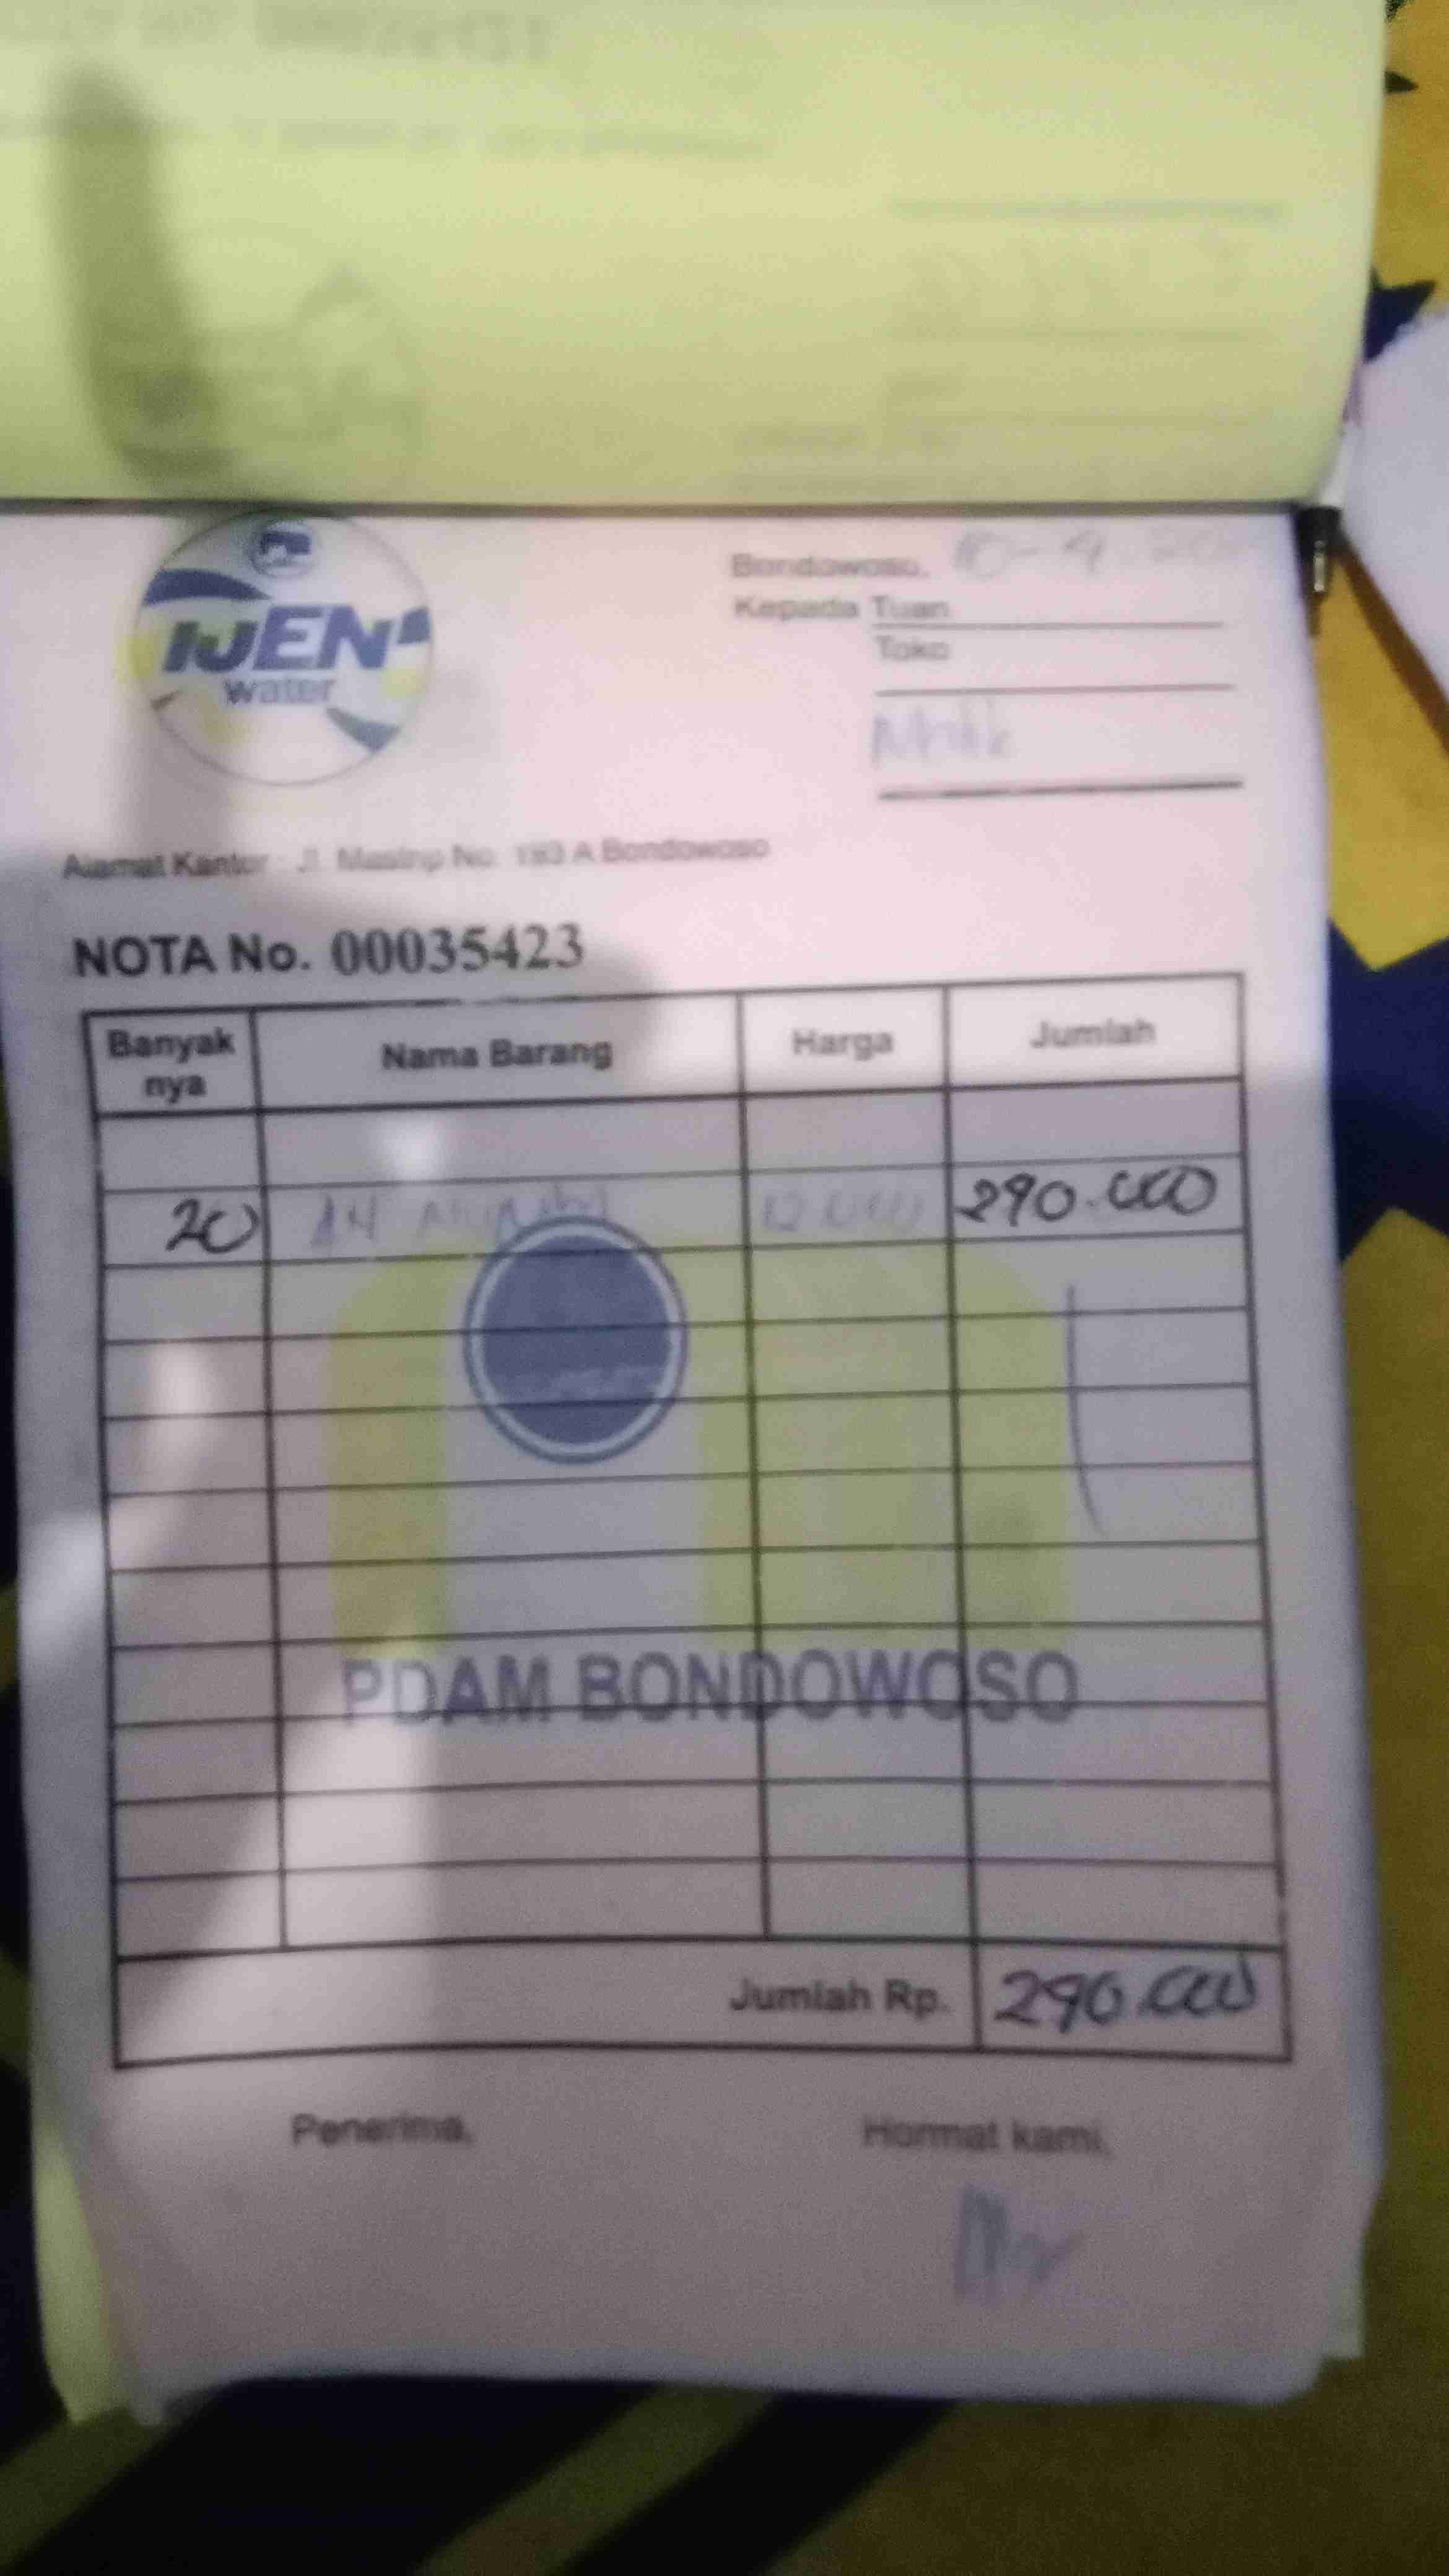 IJEN
water
Bondowoso, 10-9
Kepada Tuan
Toko
Alamat Kantor : Jl. Mastrip No. 193 A Bondowoso
NOTA No. 00035423
Banyak nya Nama Barang Harga Jumlah
20 12.000 290.000
PDAM BONDOWOSO
Jumlah Rp. 290.000
Penerima, Hormat kami,